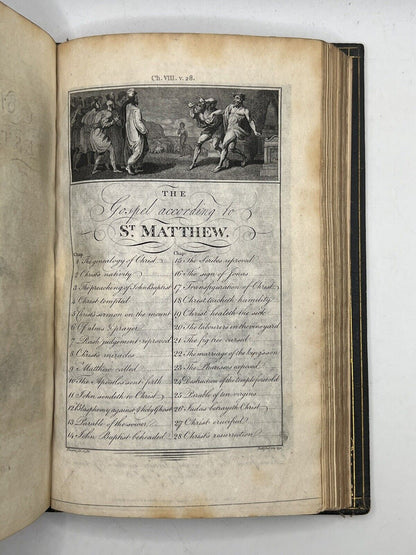 Ch. VIII. v. 28.
THE
Gospel according to
ST. MATTHEW.
Chap. Chap.
1 The genealogy of Christ 15 The Scribes reproved
2 Christ's nativity 16 The sign of Jonas
3 The preaching of John Baptist 17 Transfiguration of Christ
4 Christ tempted 18 Christ teacheth humility
5 Christ's sermon on the mount 19 Christ healeth the sick
6 Of alms & prayer 20 The labourers in the vineyard
7 Rash judgement reproved 21 The fig tree cursed
8 Christ's miracles 22 The marriage of the king's son
9 Matthew called 23 The Pharisees exposed
10 The Apostles sent forth 24 Destruction of the temple foretold
11 John sendeth to Christ 25 Parable of ten virgins
12 Blasphemy against ye holy ghost 26 Judas betrayeth Christ
13 Parable of the sower 27 Christ crucified
14 John Baptist beheaded 28 Christ's resurrection